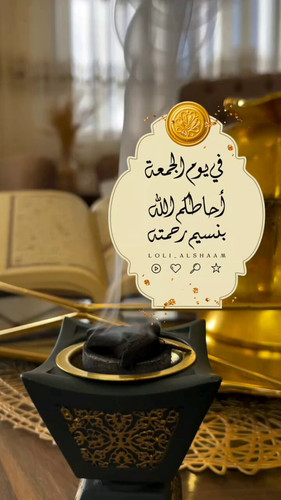 في يوم الجمعة
أحاطكم الله
بنسيم رحمته
LOLI_ALSHAAM